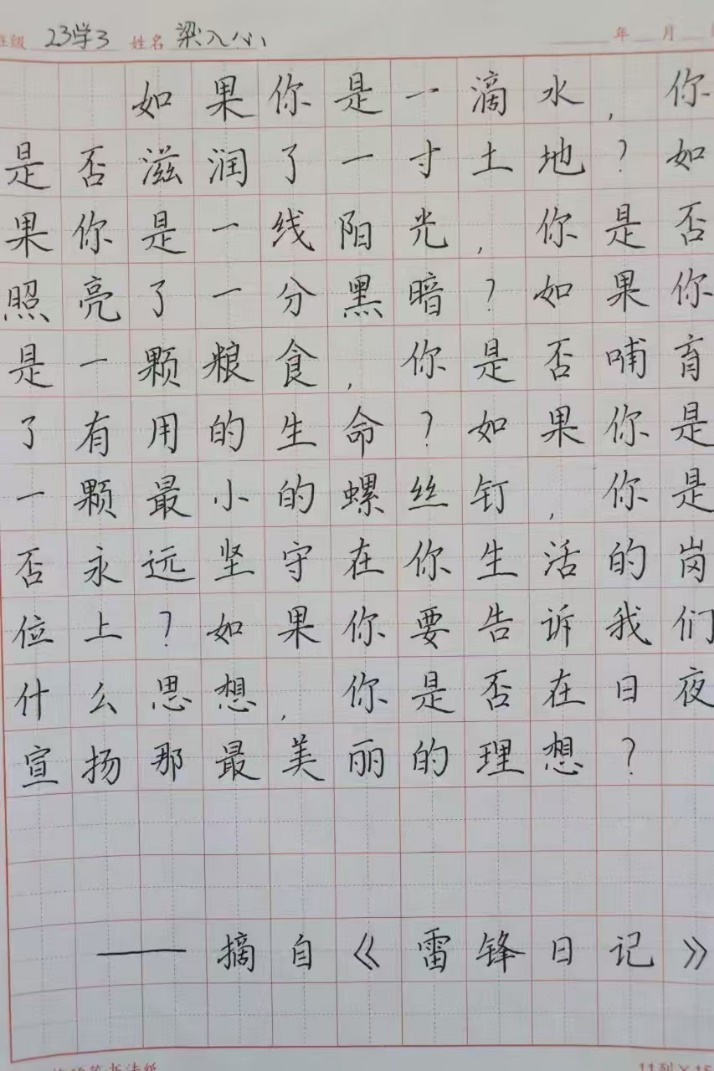 班级 23学3 姓名 梁入心 年 月
如果你是一滴水，你
是否滋润了一寸土地？如
果你是一线阳光，你是否
照亮了一分黑暗？如果你
是一颗粮食，你是否哺育
了有用的生命？如果你是
一颗最小的螺丝钉，你是
否永远坚守在你生活的岗
位上？如果你要告诉我们
什么思想，你是否在日夜
宣扬那最美丽的理想？
——摘自《雷锋日记》